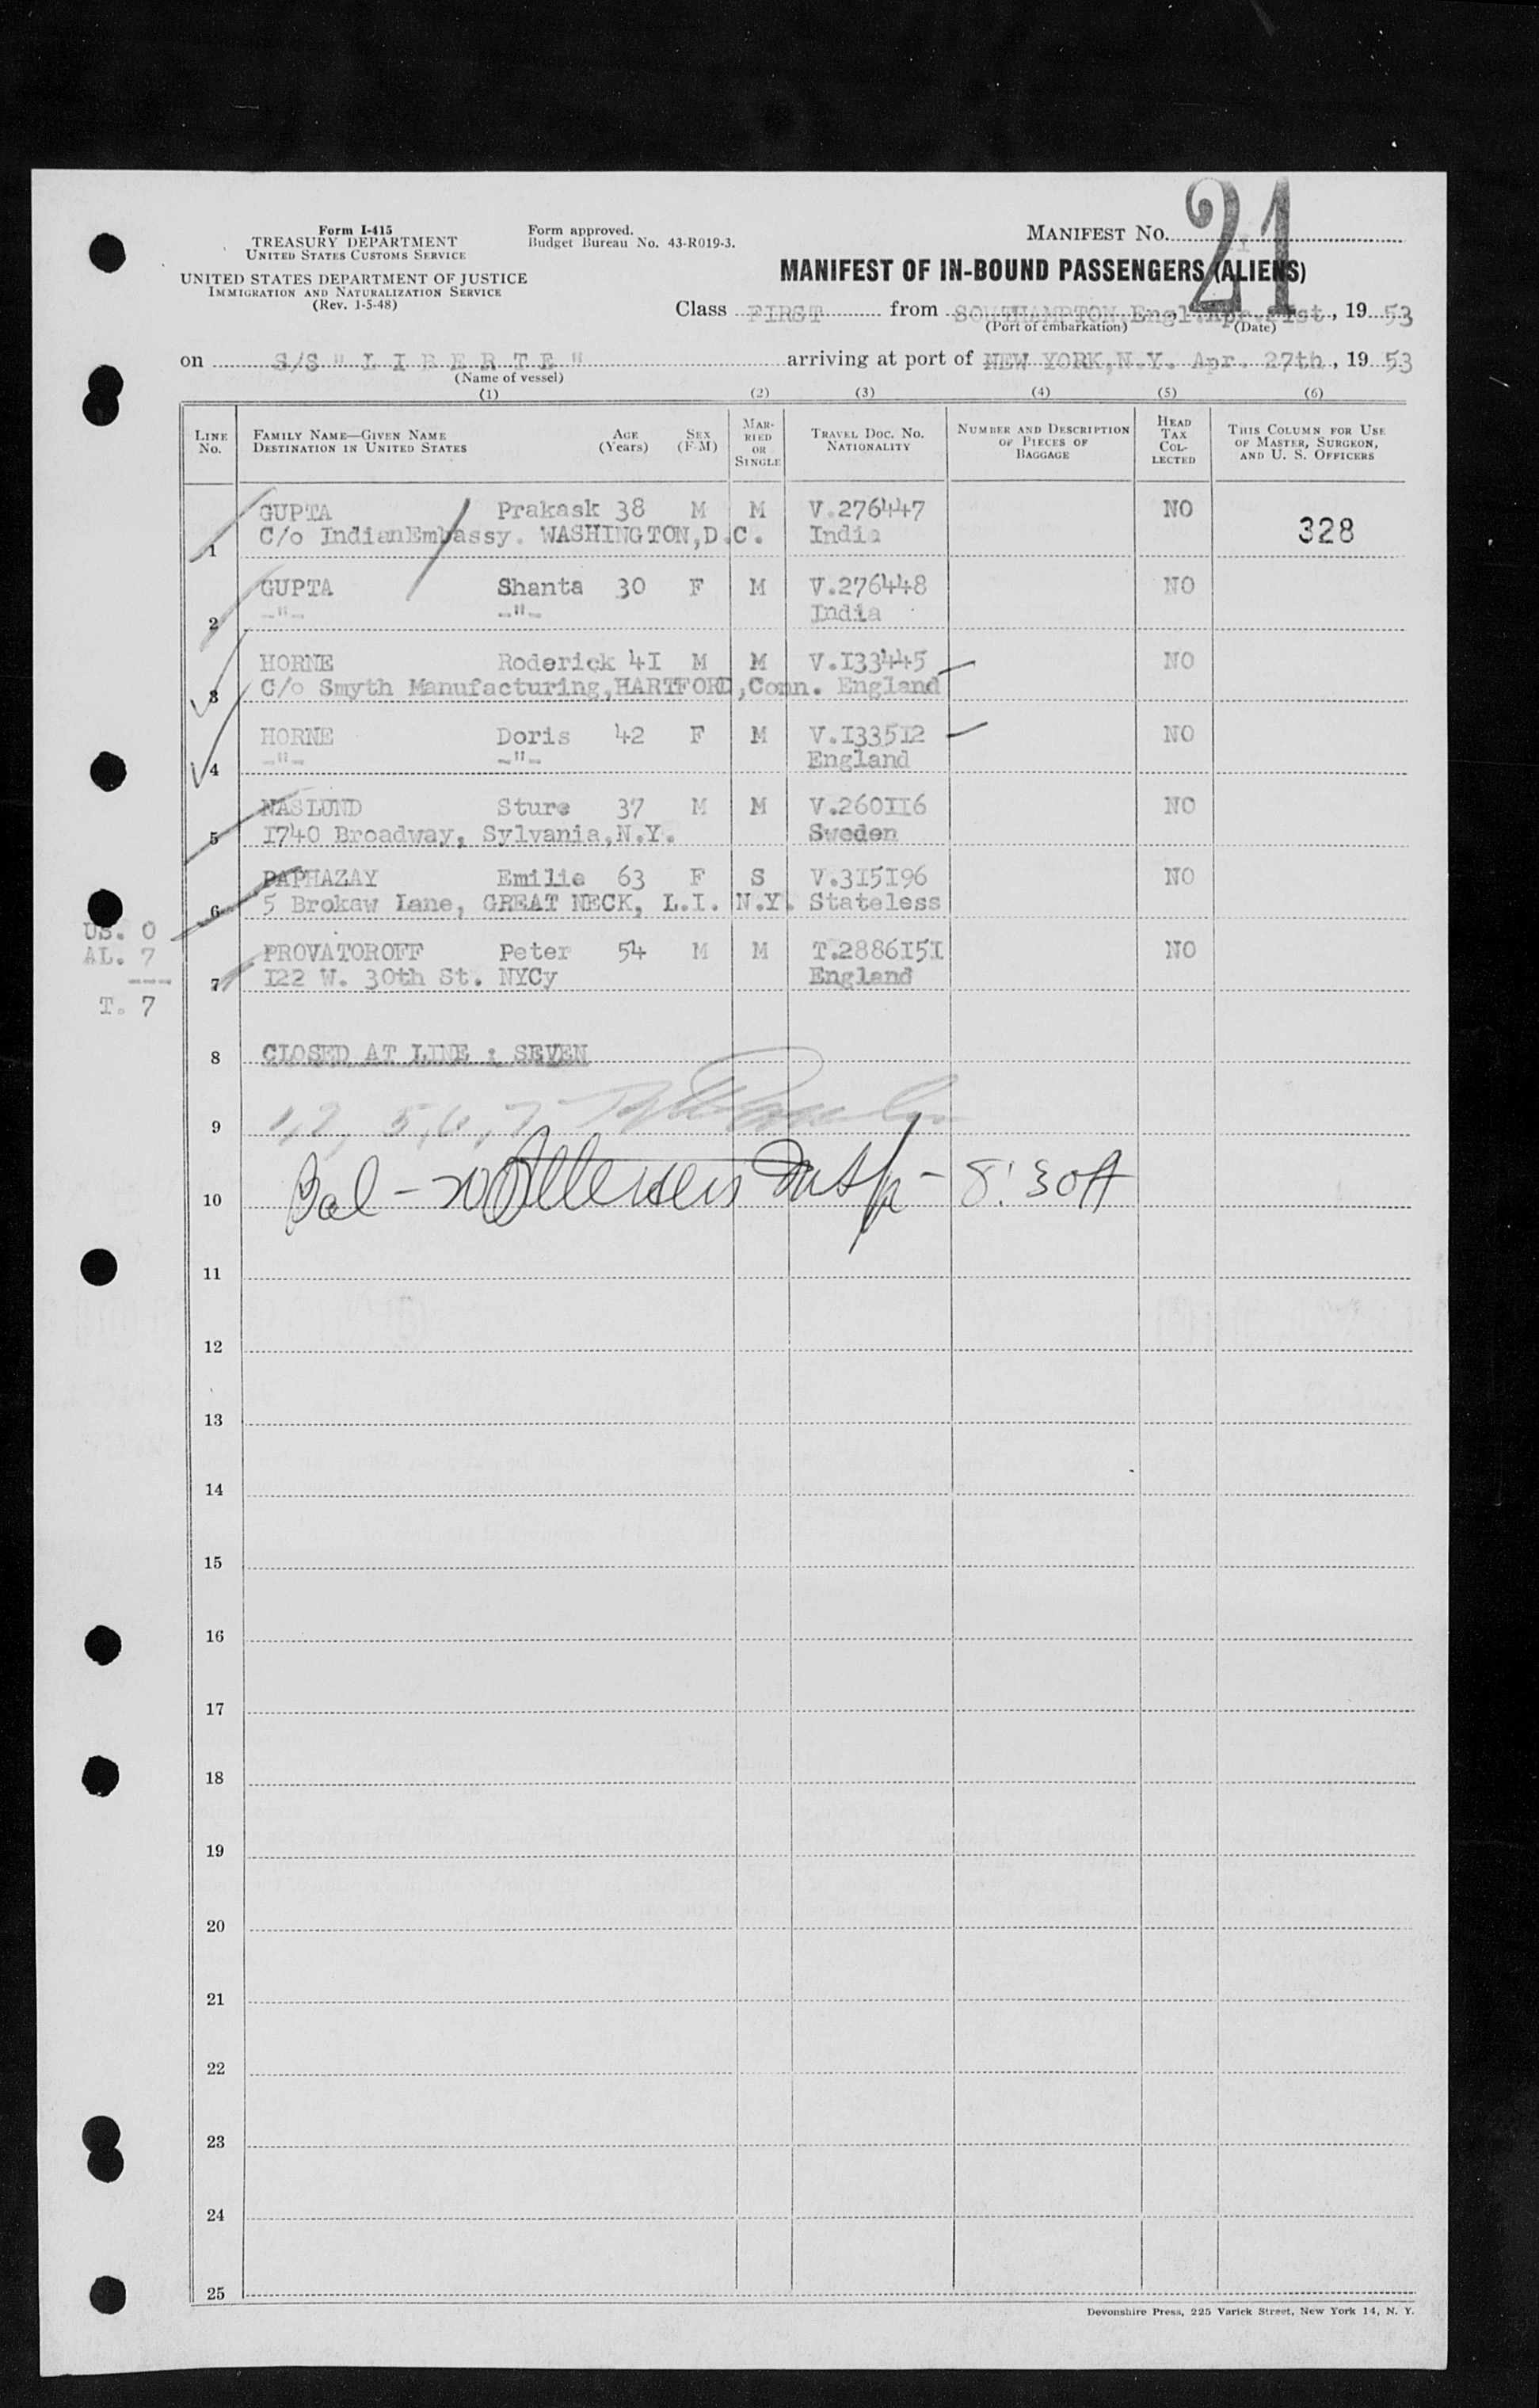 Form I-415
TREASURY DEPARTMENT
UNITED STATES CUSTOMS SERVICE
UNITED STATES DEPARTMENT OF JUSTICE
IMMIGRATION AND NATURALIZATION SERVICE
(Rev. 1-5-48)
Form approved.
Budget Bureau No. 43-R019-3.
MANIFEST NO. 21
MANIFEST OF IN-BOUND PASSENGERS (ALIENS)
Class FIRST from SOUTHAMPTON, Engl. Apr. 21st, 19 53
(Port of embarkation) (Date)
on S/S " L I B E R T E " arriving at port of NEW YORK, N.Y. Apr. 27th, 19 53
(Name of vessel)
(1) (2) (3) (4) (5) (6)
LINE NO. FAMILY NAME—GIVEN NAME DESTINATION IN UNITED STATES AGE (Years) SEX (F-M) MARRIED OR SINGLE TRAVEL DOC. NO. NATIONALITY NUMBER AND DESCRIPTION OF PIECES OF BAGGAGE HEAD TAX COLLECTED THIS COLUMN FOR USE OF MASTER, SURGEON, AND U. S. OFFICERS
GUPTA Prakask 38 M M V.276447 NO
1 C/o IndianEmbassy. WASHINGTON,D.C. India 328
GUPTA Shanta 30 F M V.276448 NO
2 -"- -"- India
HORNE Roderick 4I M M V.I33445 NO
3 C/o Smyth Manufacturing,HARTFORD,Conn. England
HORNE Doris 42 F M V.I335I2 NO
4 -"- -"- England
NASLUND Sture 37 M M V.260II6 NO
5 I740 Broadway, Sylvania,N.Y. Sweden
PAPHAZAY Emilie 63 F S V.3I5I96 NO
6 5 Brokaw Lane, GREAT NECK, L.I. N.Y. Stateless
US. 0
AL. 7
---
T. 7
PROVATOROFF Peter 54 M M T.2886I5I NO
7 I22 W. 30th St. NYCy England
8 CLOSED AT LINE : SEVEN
9 1,2, 5,6,7
10 Bal - Insp - 8:30A
11
12
13
14
15
16
17
18
19
20
21
22
23
24
25
Devonshire Press, 225 Varick Street, New York 14, N. Y.